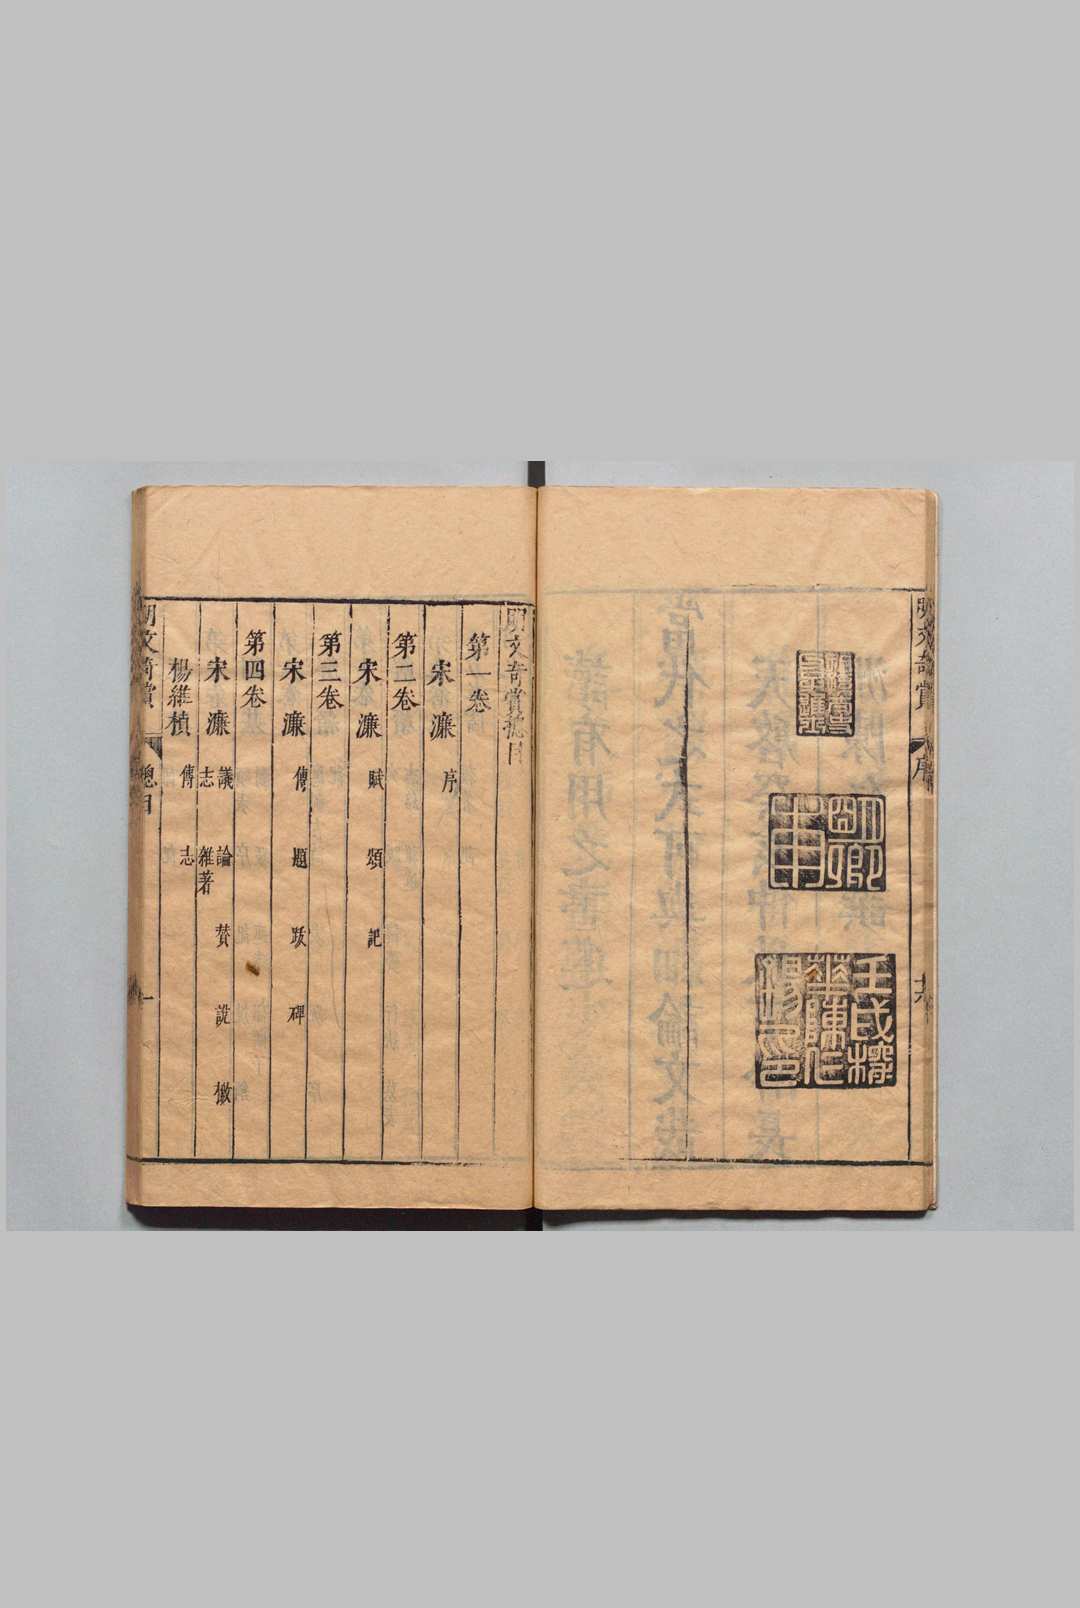 明文奇賞
序
明卿
壬戌榜
華陳仁
錫印
明文奇賞總目
第一卷
宋濂 序
第二卷
宋濂 賦 頌 記
第三卷
宋濂 傳 題 跋 碑
第四卷
宋濂 議 論 贊 說 檄
志 雜著
楊維楨 傳 志
明文奇賞
總目
一